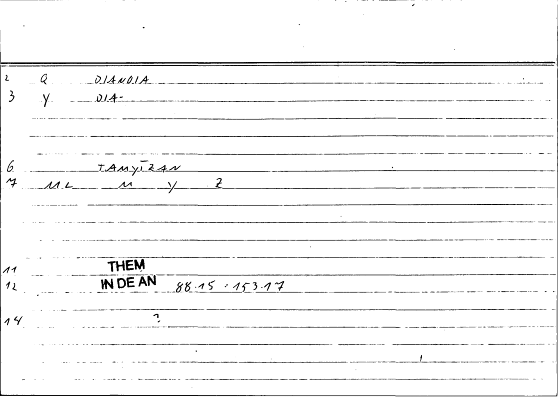 2 Q DIANDIA
3 Y DIA-
6 TAMYIZAN
7 ML M Y Z
11 THEM
12 IN DE AN 88.15 - 153.17
14 ?